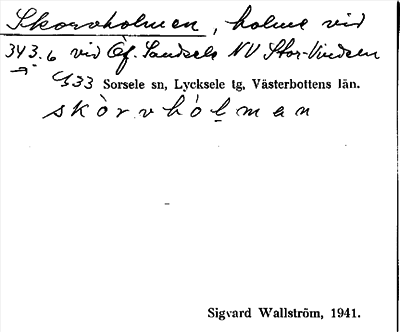 Skorvholmen, holme vid
343.6 vid Öf. Sandsele NV Stor-Vindeln
433 Sorsele sn, Lycksele tg, Västerbottens län.
skòrvhólman
Sigvard Wallström, 1941.